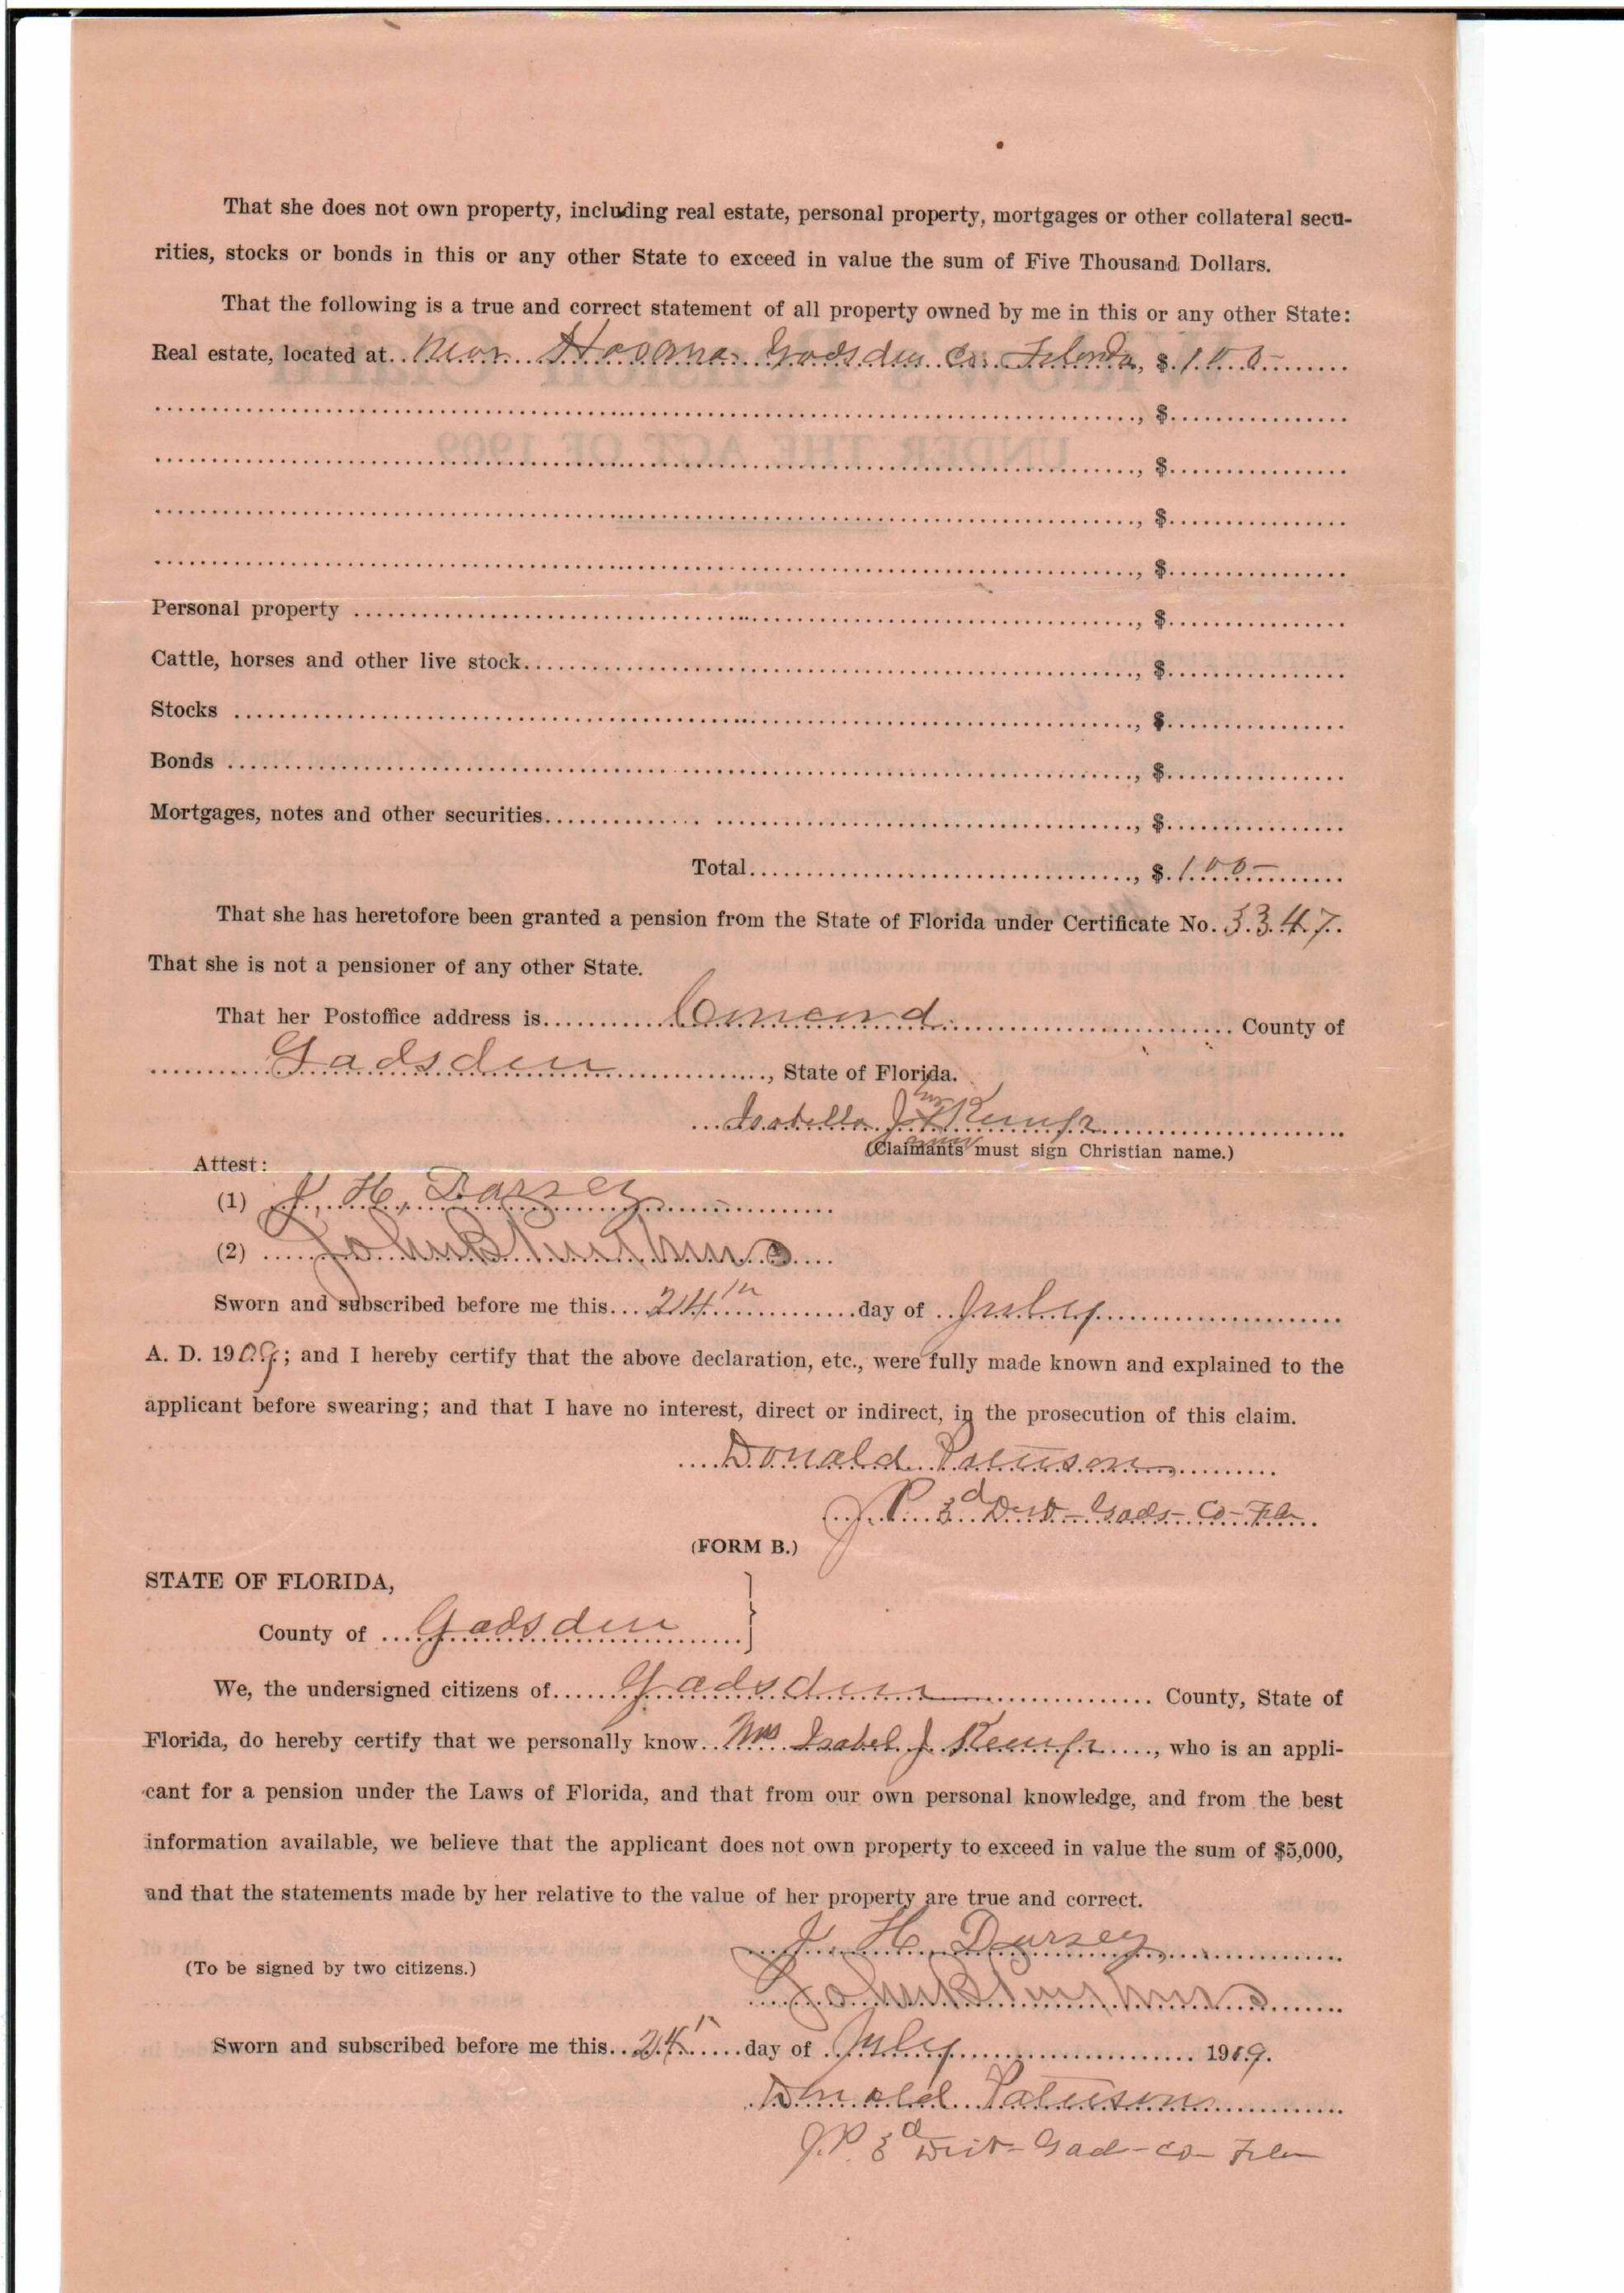 That she does not own property, including real estate, personal property, mortgages or other collateral secu-
rities, stocks or bonds in this or any other State to exceed in value the sum of Five Thousand Dollars.
That the following is a true and correct statement of all property owned by me in this or any other State:
Real estate, located at Near Havana Gadsden Co. Florida, $ 100
, $
, $
, $
, $
Personal property , $
Cattle, horses and other live stock , $
Stocks , $
Bonds , $
Mortgages, notes and other securities , $
Total , $ 100
That she has heretofore been granted a pension from the State of Florida under Certificate No. 3347.
That she is not a pensioner of any other State.
That her Postoffice address is County of
Gadsden, State of Florida.
her
Isabella J. X Kemp
mark
(Claimants must sign Christian name.)
Attest:
(1) J. H. Darsey
(2) John
Sworn and subscribed before me this 24th day of July
A. D. 1909; and I hereby certify that the above declaration, etc., were fully made known and explained to the
applicant before swearing; and that I have no interest, direct or indirect, in the prosecution of this claim.
Donald
J. P. 3d Dist - Gads - Co - Fla
(FORM B.)
STATE OF FLORIDA,
County of Gadsden
We, the undersigned citizens of Gadsden County, State of
Florida, do hereby certify that we personally know Mrs Isabel J. Kemp, who is an appli-
cant for a pension under the Laws of Florida, and that from our own personal knowledge, and from the best
information available, we believe that the applicant does not own property to exceed in value the sum of $5,000,
and that the statements made by her relative to the value of her property are true and correct.
J. H. Darsey
(To be signed by two citizens.)
John
Sworn and subscribed before me this 24th day of July 1909.
Donald
J.P. 3d Dist - Gad - Co - Fla